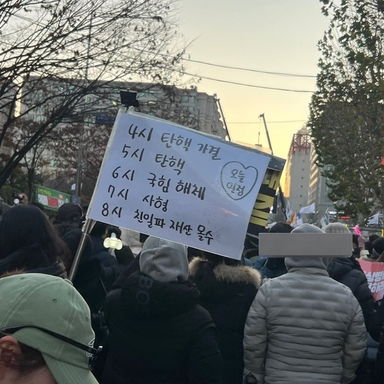 4시 탄핵 가결
5시 탄핵
6시 국힘 해체
7시 사형
8시 친일파 재산 몰수
오늘
일정